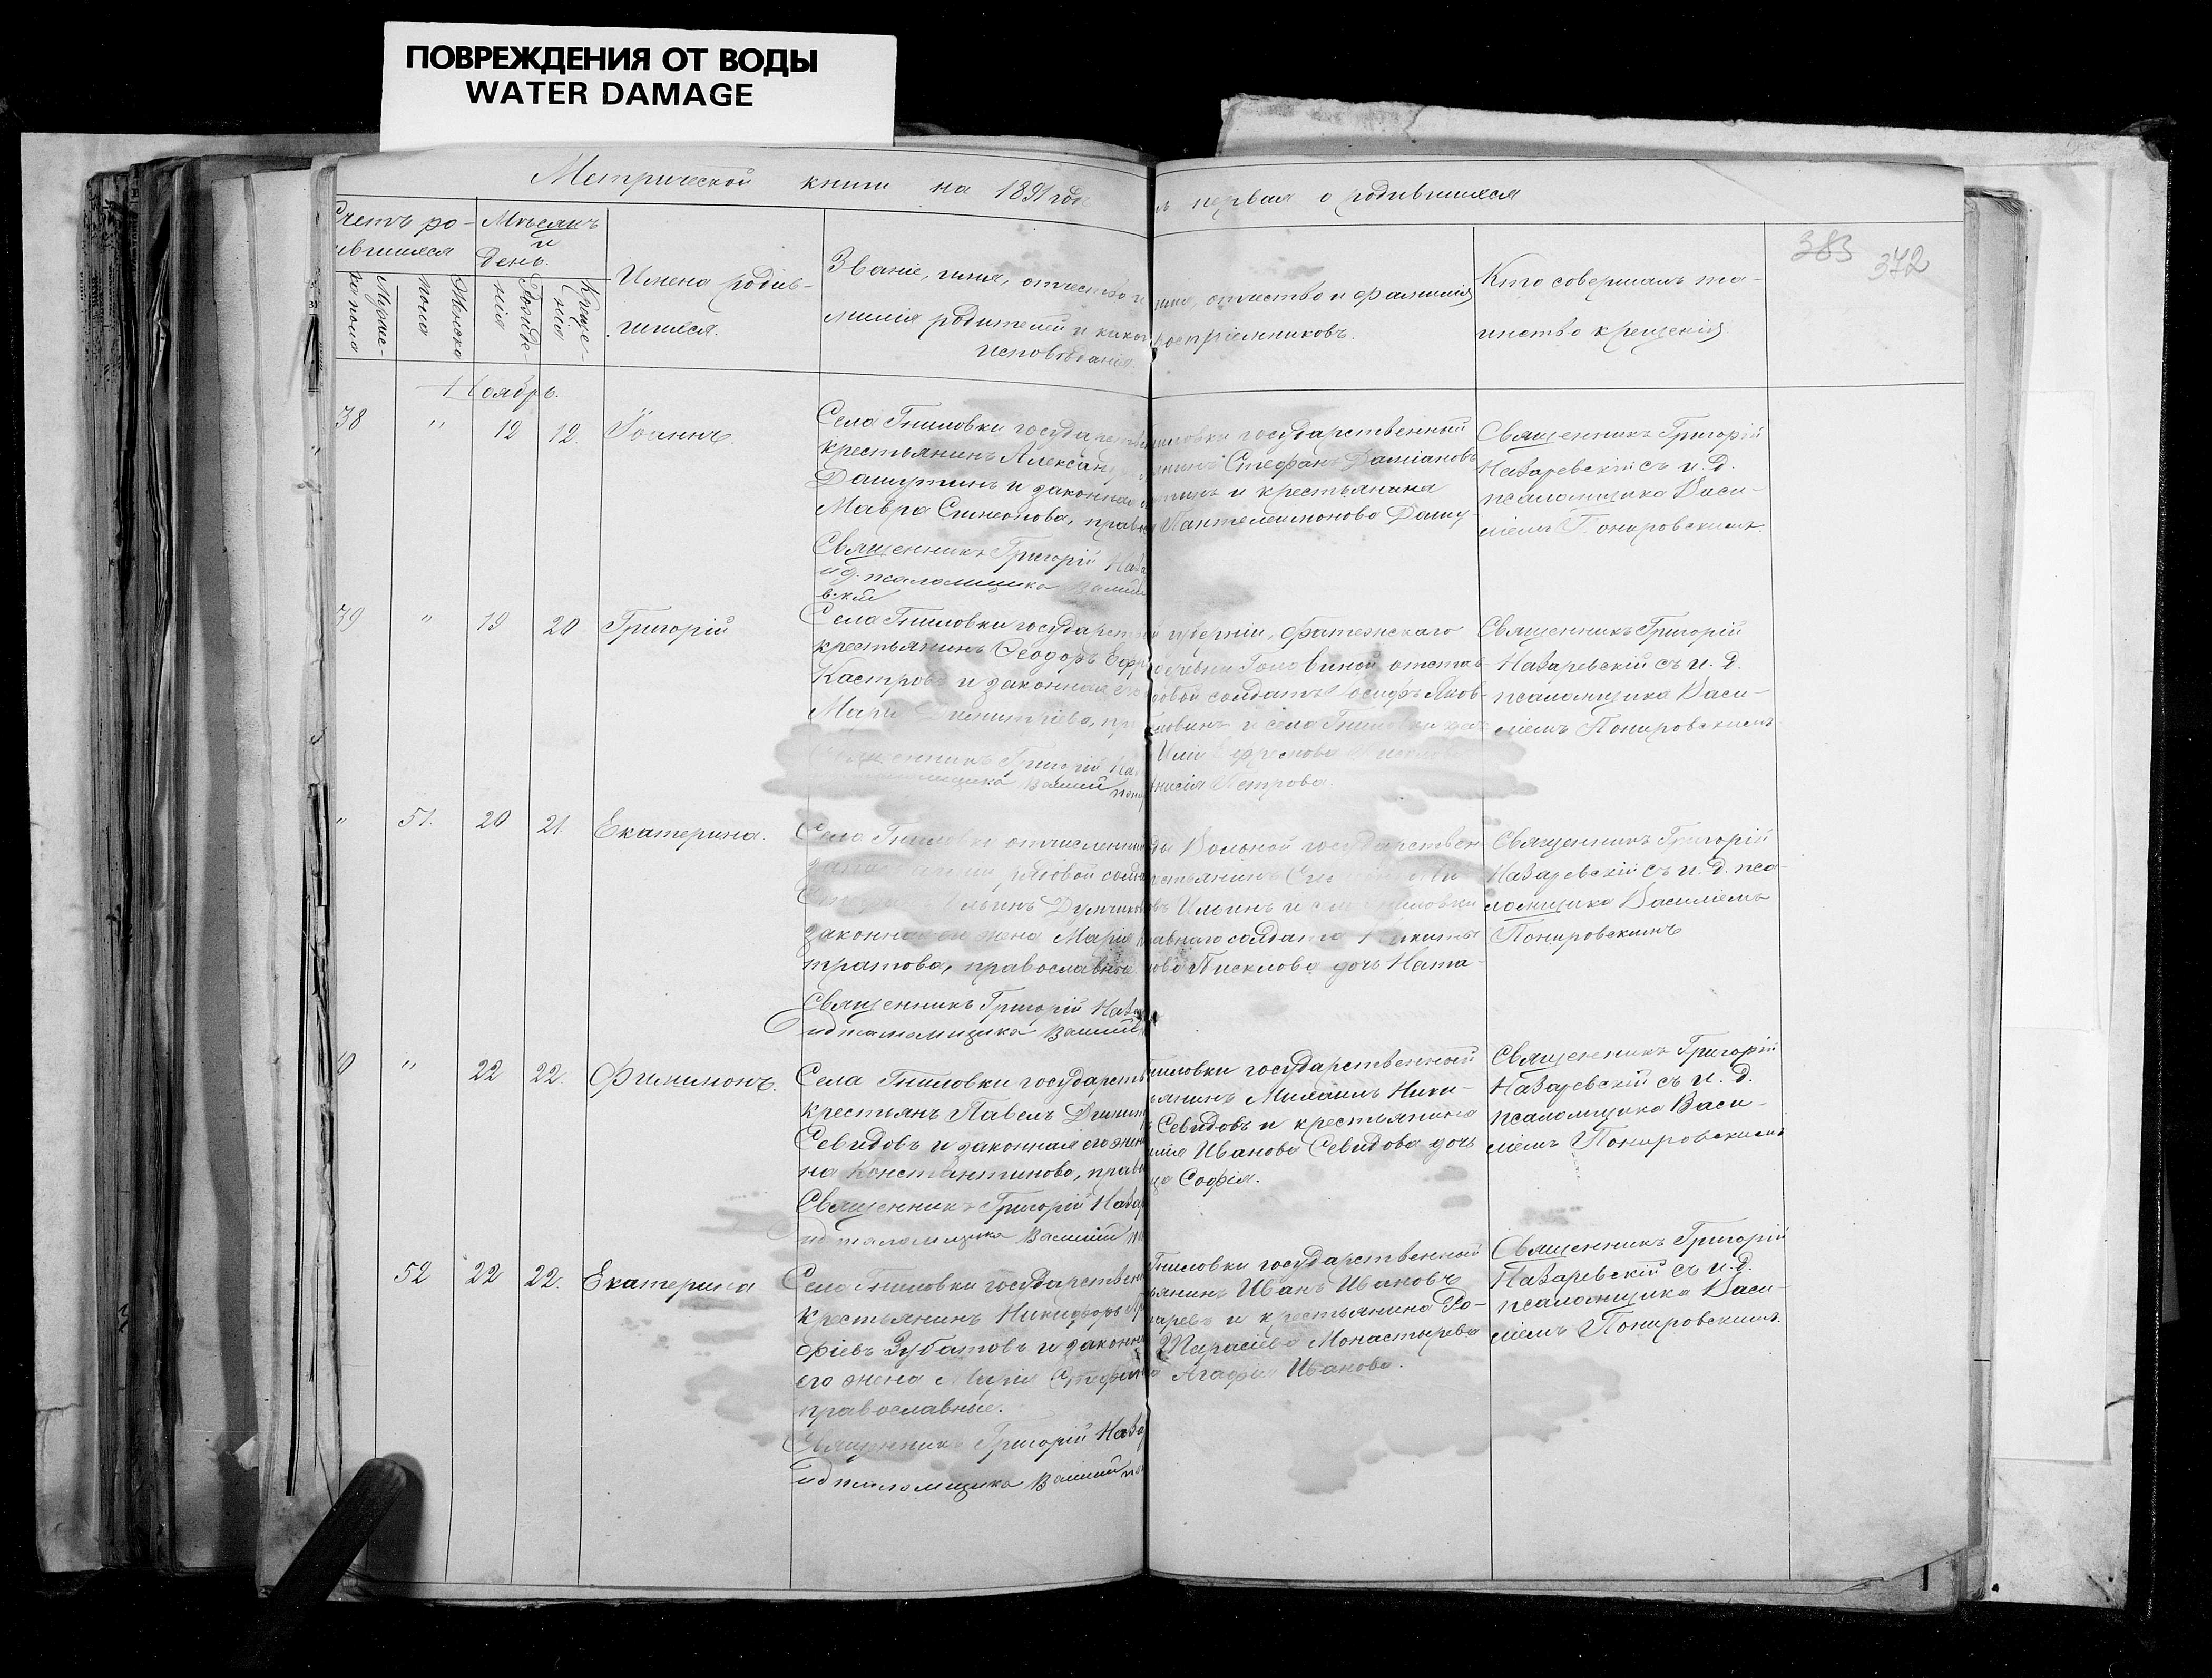 ПОВРЕЖДЕНИЯ ОТ ВОДЫ
WATER DAMAGE
Метрической книги на 1891 годъ
первая о родившихся
383 372
Счетъ ро-
ившихся
Мужес-
ка пола
Женска
пола
Мѣсяцъ
и
день.
Рожде-
нія
Креще-
нія
Имена родив-
шихся.
Званіе, имя, отчество и
милія родителей и какого
исповѣданія.
имя, отчество и фамилія
воспріемниковъ.
Кто совершалъ та-
инство крещенія.
Ноябрь.
38 " 12 12. Іоаннъ.
Села Гниловки государствен
крестьянинъ Александръ
Дашутинъ и законная
Мавра Симеонова, право
Священникъ Григорій Наза
ид. псаломщика Василій
вскій
ниловки государственный
нинъ Стефанъ Даміановъ
тинъ и крестьянина
Пантелеимонова Дашу-
Священникъ Григорій
Назаревскій съ и. д.
псаломщика Васи-
ліемъ Понировскимъ.
39 " 19 20 Григорій
Села Гниловки государствен
крестьянинъ Ѳеодоръ Ефр
Кастровъ и законная его
Марія Димитріева, пр
Священникъ Григорій Наз
псаломщика Василій Пони
губерніи, Фатежскаго
деревни Головиной отстав-
довой солдатъ Іосифъ Яков-
ловинъ и села Гниловки
нисія Петрова.
Священникъ Григорій
Назаревскій съ и. д.
псаломщика Васи-
ліемъ Понировскимъ
" 51. 20 21. Екатерина.
Села Гниловки отчисленный
рядовой солда
Ильинъ Думчиков
законная его жена Марія
тратова, православные
Священникъ Григорій Назар
ид псаломщика Василій
ды Вольной государствен-
стьянинъ
въ Ильинъ и села Гниловки
тавнаго солдата Никиты
ова Писклова дочь Ната-
Священникъ Григорій
Назаревскій съ и. д. пса-
ломщика Василіемъ
Понировскимъ
40 " 22 22. Филимонъ.
Села Гниловки государств
крестьян Павелъ Димит
Севидовъ и законная его жен
на Константинова, право
Священникъ Григорій Назар
ид псаломщика Василій По
Гниловки государственный
ьянинъ Михаилъ Ники-
Севидовъ и крестьянина
Иванова Севидова дочь
ца Софія.
Священникъ Григорій
Назаревскій съ и. д.
псаломщика Васи-
ліемъ Понировскимъ
52 22 22. Екатерина
Села Гниловки государствен
крестьянинъ Никифоръ
фіевъ Зубатовъ и законна
его жена Марія Стефан
православные.
Священникъ Григорій Наза
ид псаломщика Василій По
Гниловки государственный
ьянинъ Иванъ Ивановъ
таревъ и крестьянина Ро-
Тарасіева Монастырева
Агафія Иванова.
Священникъ Григорій
Назаревскій съ и. д.
псаломщика Васи-
ліемъ Понировскимъ.